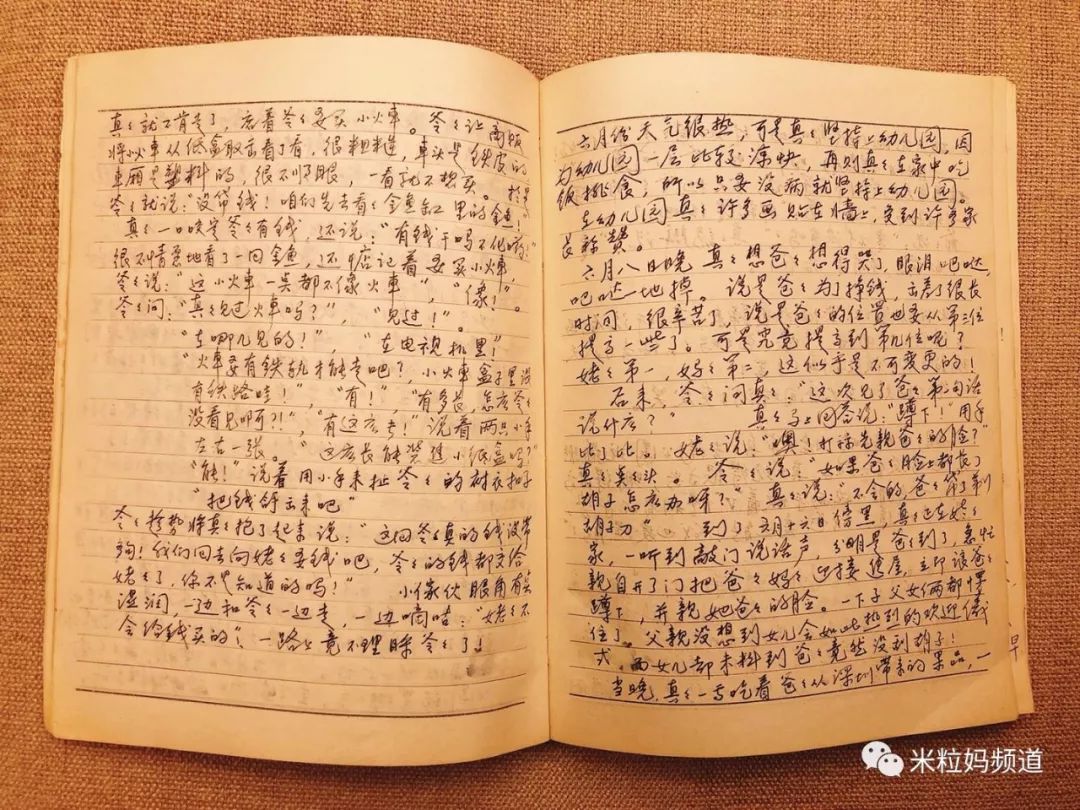 真々就不肯走了，意着爷々要买小火車。爷々让商贩
将小火車从纸盒取出看了看，很粗糙，車头是铁皮的
車厢是塑料的，很不順眼，一看就不想买。於是
爷々就说："没带钱！咱们先去看々金鱼缸里的金鱼！
真々一口咬定爷々有钱，还说："有钱干吗不花啊"
很不情愿地看了一回金鱼，还惦记着要买小火車
爷々说："这小火車一点都不像火車"，"像！"。
爷々问："真々见过火車吗？"，"见过！"。
"在哪儿见的！"，"在电视机里！"
"火車要有铁轨才能走吧？，小火車盒子里没
有铁路哇！"，"有！"，"有多长，怎么爷々
没看见啊?!"，"有这么长！"说着两只小手
左右一张。"这么长能装进小纸盒吗？"
"能！"说着用小手来扯爷々的衬衣扣子
"把钱舒出来吧"
爷々趁势将真々抱了起来说："这回爷々真的钱没带
夠！我们回去向姥々要钱吧，爷々的钱都交给
姥々了，你不是知道的吗！"小傢伙眼角有些
湿润，一边扣爷々一边走，一边嘀咕："姥々不
会给钱买的"，一路上竟不理睬爷々了！
六月份天气很热，可是真々坚持上幼儿园，因
为幼儿园一层比较凉快，再则真々在家中吃
饭挑食，所以只要没病就坚持上幼儿园。
在幼儿园真々许多画贴在墙上，受到许多家
长称赞。
六月八日晚真々想爸々想得哭了，眼泪吧哒，
吧哒地掉。说是爸々为了挣钱，出差了很长
时间，很辛苦了，说是爸々的位置也要从第三位
提高一些了。可是究竟提高到第几位呢？
姥々第一，妈々第二，这似乎是不可变更的！
后来，爷々问真々："这次见了爸々第一句话
说什么？"真々马上回答说："蹲下！"用手
比了比。姥々说："噢！打祘先親爸々的脸？"
真々点点头。爷々说："如果爸々脸上都长了
胡子怎么办呀？"真々说："不会的，爸々带了剃
胡子刀"到了六月十六日傍黑，真々正在姥々
家，一听到敲门说话声，分明是爸々到了，急忙
親自开了门把爸々妈々迎接進屋，立即让爸々
蹲下，并親她爸々的脸。一下子父女俩都愣
住了。父親没想到女儿会如此热烈的欢迎儀
式，而女儿却未料到爸々竟然没刮胡子！
当晚，真々一边吃着爸々从深圳带来的果品，一
早
米粒妈频道